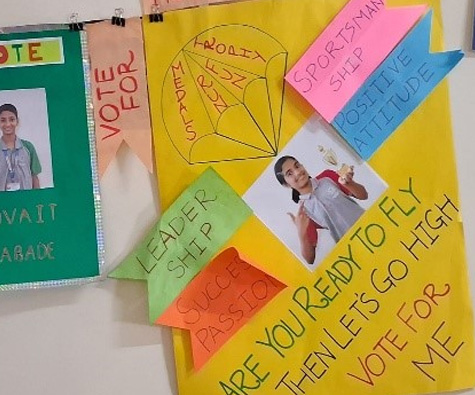 OTE
ABADE
VOTE
FOR
TROPHY
MEDALS
FUN
SPORTSMAN
SHIP
POSITIVE
ATTITUDE
LEADER
SHIP
SUCCE
PASSIO
ARE YOU READY TO FLY
THEN LET'S GO HIGH
VOTE FOR
ME